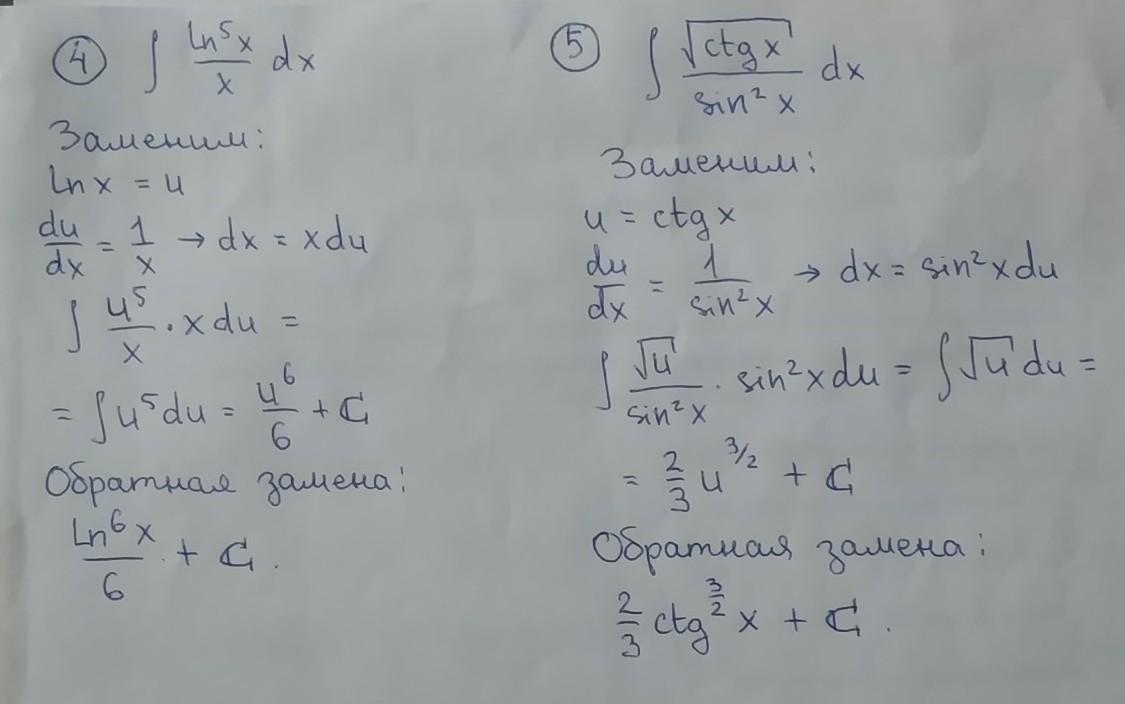 ④ ∫ ln⁵x/x dx
Заменим:
ln x = u
du/dx = 1/x → dx = xdu
∫ u⁵/x · xdu =
= ∫u⁵du = u⁶/6 + C
Обратная замена:
ln⁶x/6 + C.
⑤ ∫ √(ctg x)/sin²x dx
Заменим:
u = ctg x
du/dx = 1/sin²x → dx = sin²xdu
∫ √u/sin²x · sin²xdu = ∫√u du =
= 2/3 u^(3/2) + C
Обратная замена:
2/3 ctg^(3/2) x + C.